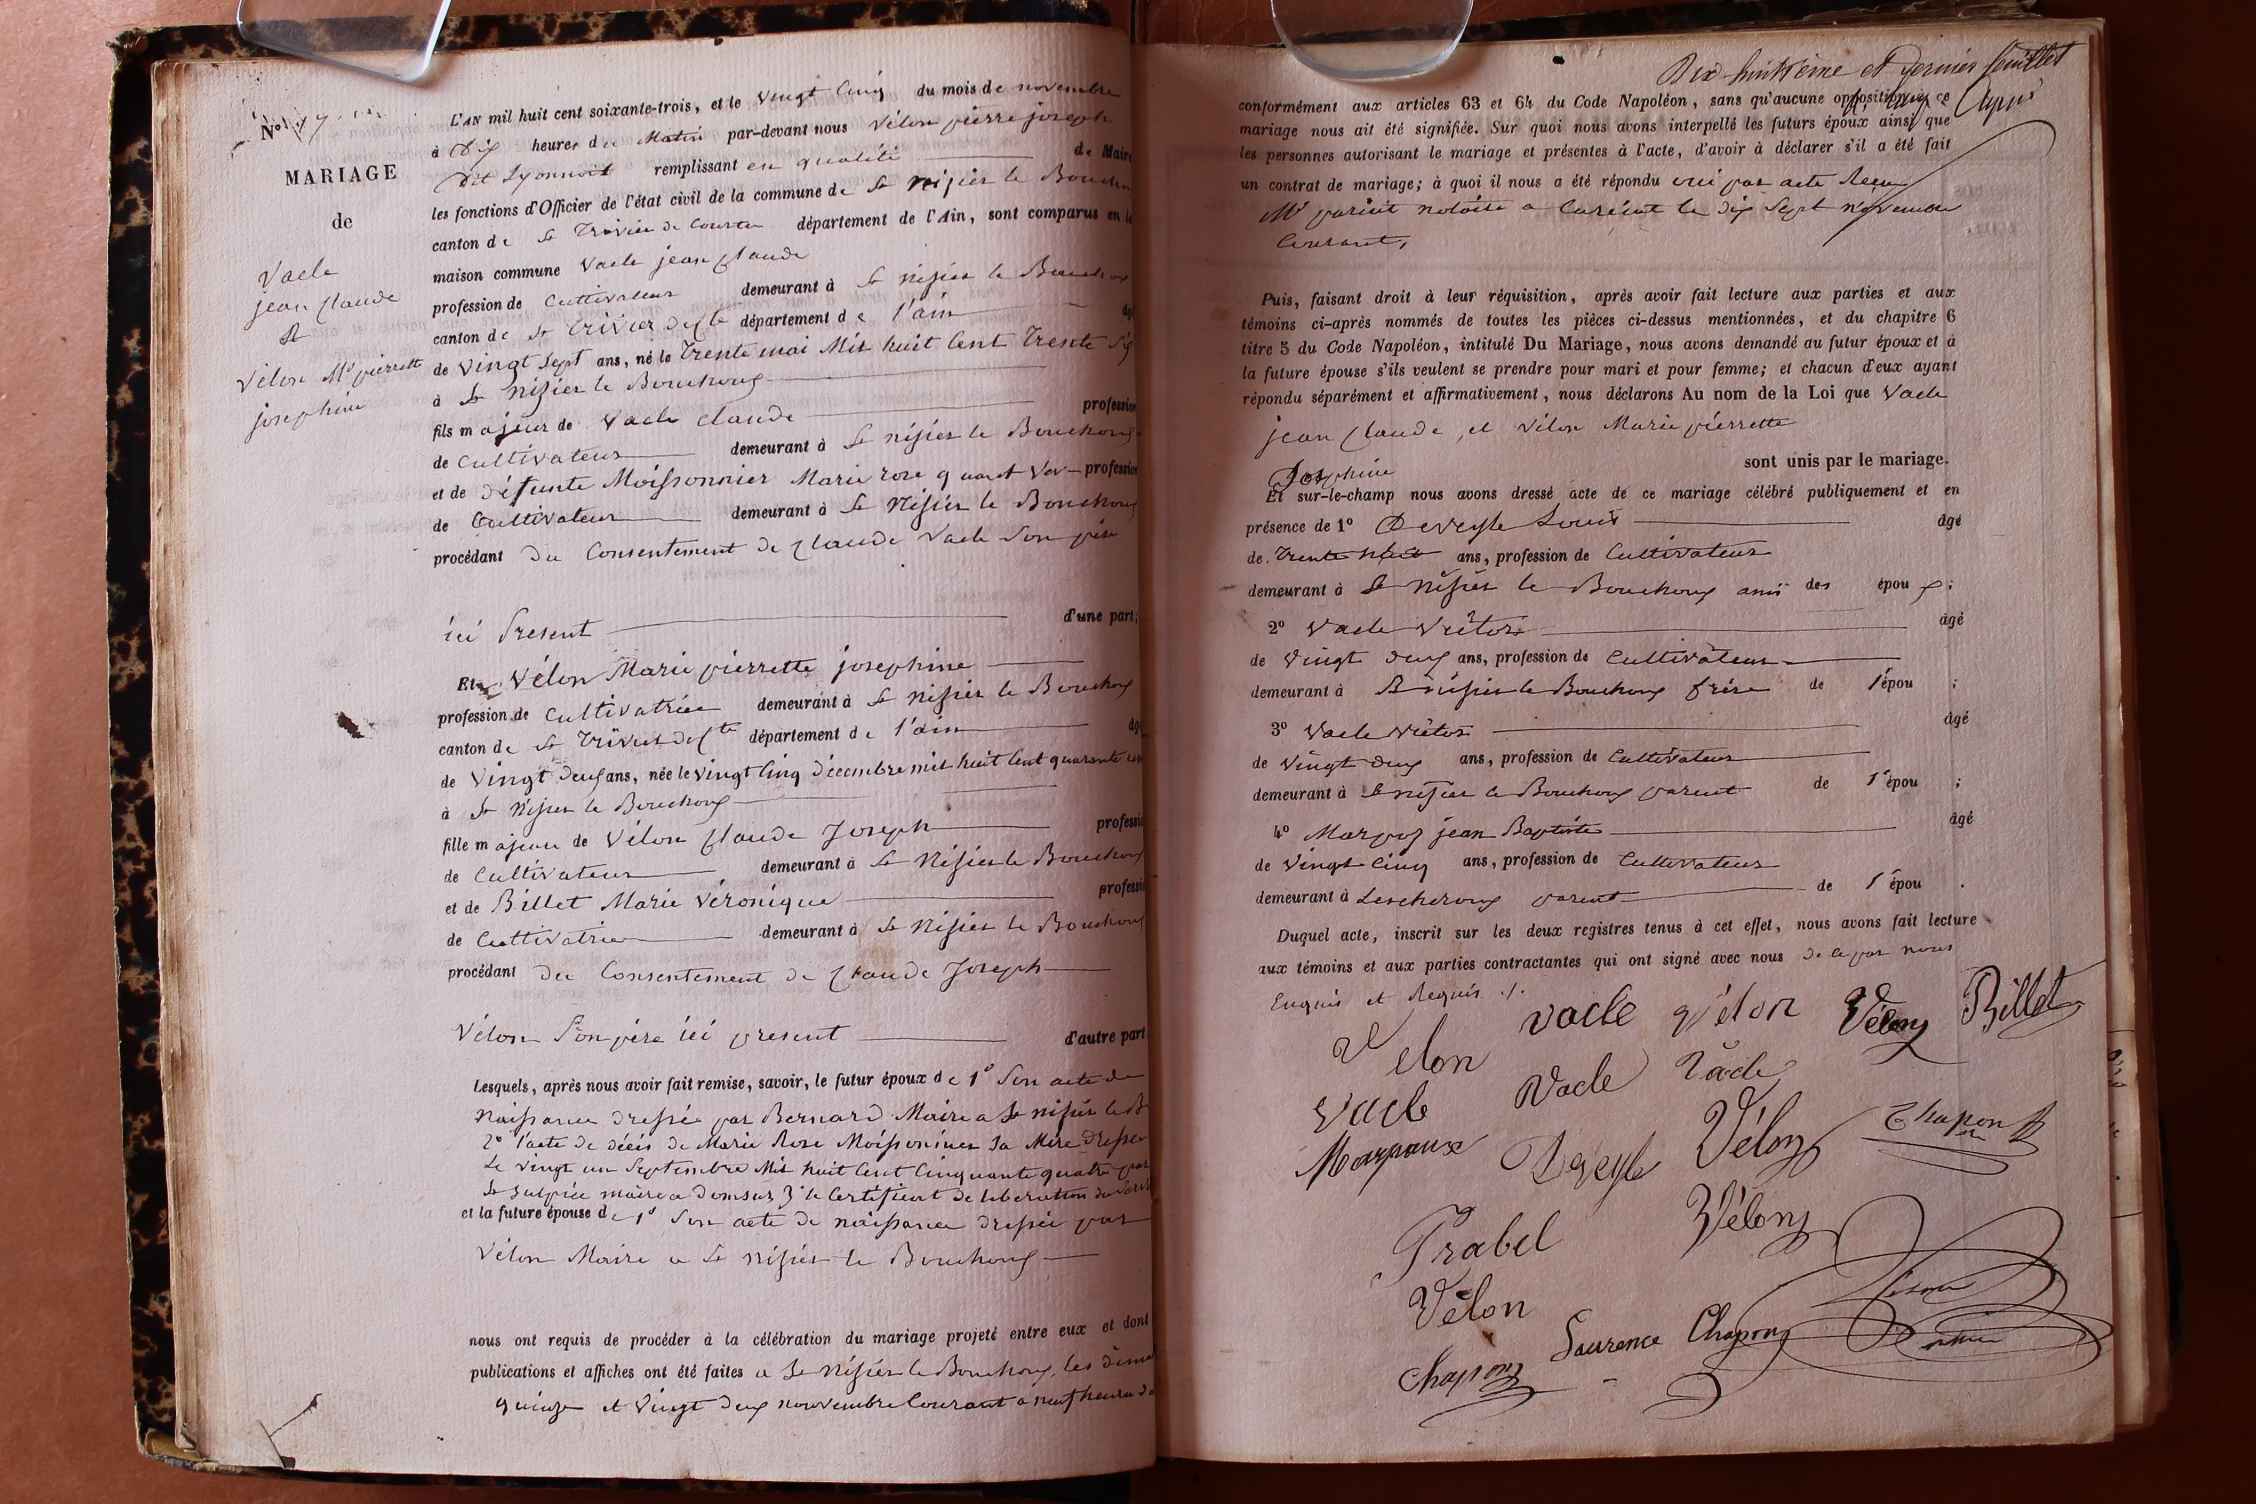 N° 17
MARIAGE
de
Vacle
jean Claude
et
Vélon Mie pierrette
josephine
L'AN mil huit cent soixante-trois, et le vingt Cinq du mois de novembre
à Dix heures du Matin par-devant nous Vélon pierre joseph
dit Lyonnois remplissant en qualité de Maire
les fonctions d'Officier de l'état civil de la commune de St Nisier le Bouchoux
canton de St Trivier de Courtes département de l'Ain, sont comparus en la
maison commune Vacle jean Claude
profession de Cultivateur demeurant à St Nisier le Bouchoux
canton de St Trivier de Ctes département de l'ain âgé
de vingt sept ans, né le trente mai Mil huit Cent Trente Six
à St Nizier le Bouchoux
fils majeur de Vacle Claude profession
de Cultivateur demeurant à St Nisier le Bouchoux
et de défunte Moissonnier Marie rose quand viv profession
de Cultivateur demeurant à St Nisier le Bouchoux
procédant du Consentement de Claude Vacle Son père
ici Présent d'une part;
Et Vélon Marie pierrette josephine
profession de Cultivatrice demeurant à St Nisier le Bouchoux
canton de St Trivier de Ctes département de l'ain âgée
de Vingt deux ans, née le vingt Cinq décembre mil huit Cent quarante un
à St Nisier le Bouchoux
fille majeure de Vélon Claude Joseph profession
de Cultivateur demeurant à St Nisier le Bouchoux
et de Billet Marie Véronique profession
de Cultivatrice demeurant à St Nisier le Bouchoux
procédant du Consentement de Claude Joseph
Vélon Son père ici présent d'autre part
Lesquels, après nous avoir fait remise, savoir, le futur époux de 1° Son acte de
Naissance dressée par Bernard Maire a St nisier le B
2° l'acte de décès de Marie Rose Moissonnier Sa Mère dressée
Le vingt un Septembre Mil huit Cent Cinquante quatre par
St Sulpice maire a domsur 3° le Certificat de liberation du Servi
et la future épouse de 1° Son acte de naissance dressée par
Vélon Maire a St nisier le Bouchoux
nous ont requis de procéder à la célébration du mariage projeté entre eux et dont
publications et affiches ont été faites a St Nisier le Bouchoux, les diman
quinze et vingt deux nouvembre Courant à neuf heures du
Dix-huitième et dernier feuillet
conformément aux articles 63 et 64 du Code Napoléon, sans qu'aucune opposition à ce
mariage nous ait été signifiée. Sur quoi nous avons interpellé les futurs époux ainsi que
les personnes autorisant le mariage et présentes à l'acte, d'avoir à déclarer s'il a été fait
un contrat de mariage; à quoi il nous a été répondu oui par acte Recu
Me notaire a le dix Sept novembre
Courant,
Puis, faisant droit à leur réquisition, après avoir fait lecture aux parties et aux
témoins ci-après nommés de toutes les pièces ci-dessus mentionnées, et du chapitre 6
titre 5 du Code Napoléon, intitulé Du Mariage, nous avons demandé au futur époux et à
la future épouse s'ils veulent se prendre pour mari et pour femme; et chacun d'eux ayant
répondu séparément et affirmativement, nous déclarons Au nom de la Loi que Vacle
jean Claude, et Vélon Marie pierrette
Josephine sont unis par le mariage.
Et sur-le-champ nous avons dressé acte de ce mariage célébré publiquement et en
présence de 1° Deveyle Louis âgé
de Trente ans, profession de Cultivateur
demeurant à St Nisier le Bouchoux ami des époux;
2° Vacle Victor âgé
de Vingt deux ans, profession de Cultivateur
demeurant à St nisier le Bouchoux frère de l'épou;
3° Vacle Victor âgé
de Vingt deux ans, profession de Cultivateur
demeurant à St nisier le Bouchoux parent de l'épou;
4° Marpoz jean Baptiste âgé
de Vingt Cinq ans, profession de Cultivateur
demeurant à Lescheroux parent de l'épou.
Duquel acte, inscrit sur les deux registres tenus à cet effet, nous avons fait lecture
aux témoins et aux parties contractantes qui ont signé avec nous de ce par nous
Enquis et Requis ./.
Velon vacle vélon Vélon Billet
Vacle Vacle Vacle
Marpaux Deveyle Vélon Chapon
Prabel Vélon
Vélon
Chapon Laurence Chapon